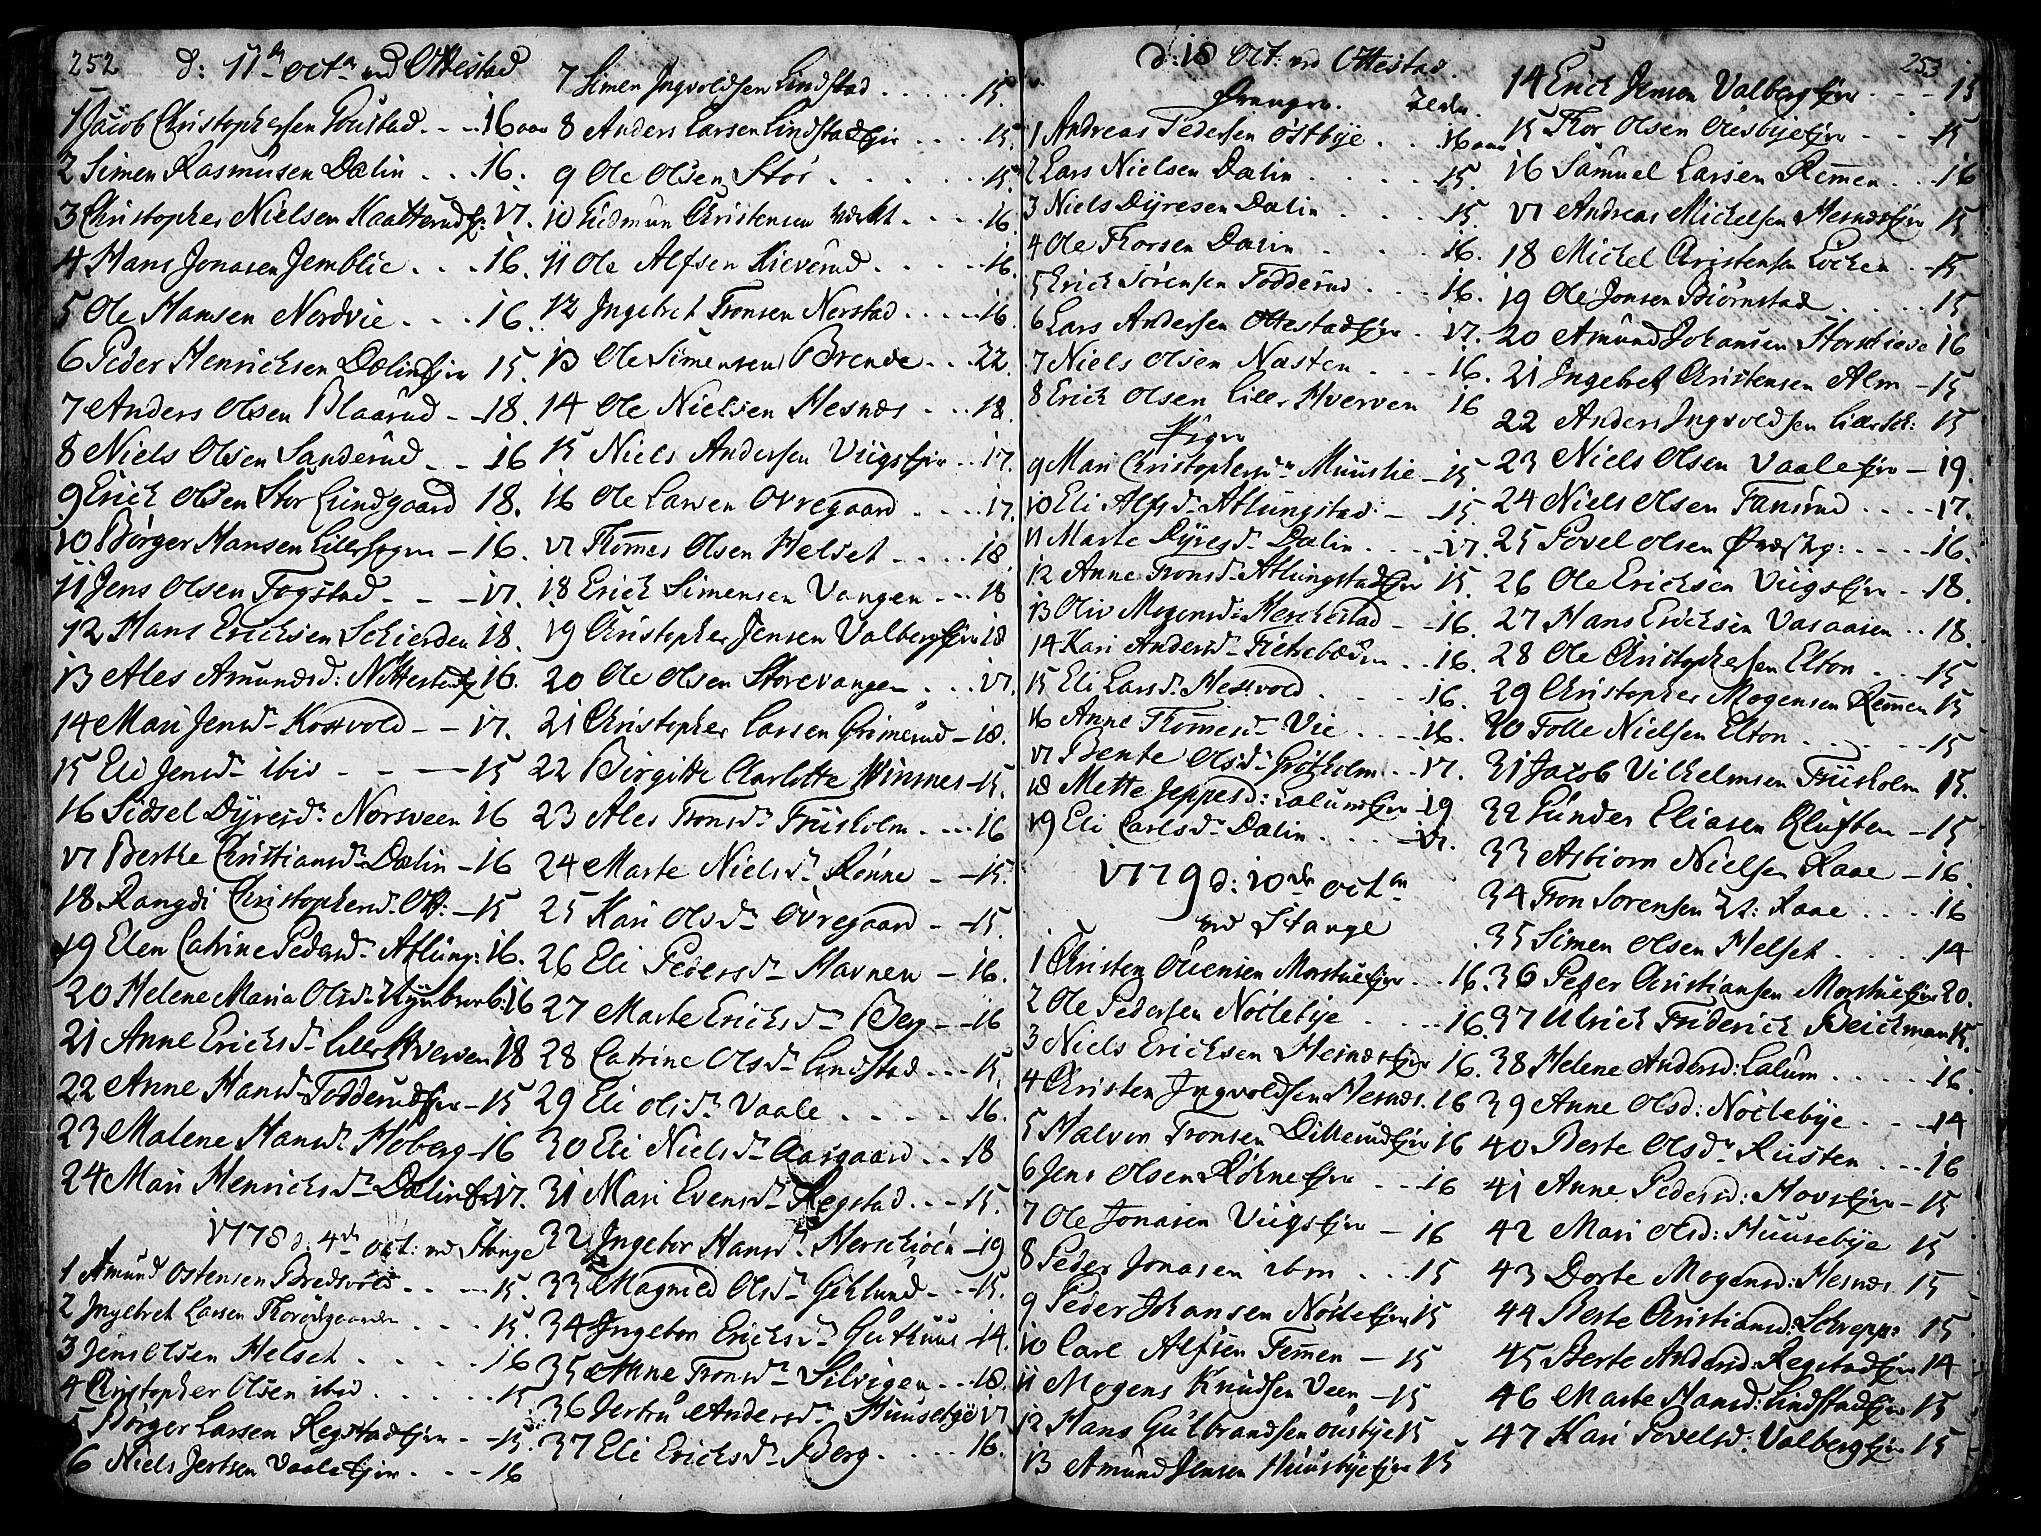 252
d: 11te octr ved Ottestad
1 Jacob Christophersen Toustad - - 16 aar
2 Simen Rasmusen Dælin - - - 16.
3 Christopher Nielsen Kaatterud Ejr 17.
4 Hans Jonasen Jemblie - - - 16.
5 Ole Hansen Nordvie - - - 16
6 Peder Henrichsen Dælin Ejer 15.
7 Anders Olsen Blaarud - - 18.
8 Niels Olsen Sanderud - - 16
9 Erich Olsen Stor Lundgaard 18.
10 Børger Hansen Lille - 16.
11 Jens Olsen Fogstad - - - 17.
12 Hans Erichsen Schierden 18.
13 Ales Amundsd: 16.
14 Mari Jensdr Kosvold - - 17.
15 Eli Jensdr ibid - - - 15
16 Sidsel Dyresdr Norsveen 16
17 Berthe Christiansdr Dælin - 16
18 Rangdi Christophersd. Ott: - 15
19 Elen Catrine Pedersdr Atlung: 16.
20 Helene Maria Olsdr 16
21 Anne Ericksdr Lille Hverven 18
22 Anne Hansdr Todderud Ejer - 15
23 Malene Hansdr Hoberg - 16
24 Mari Henrichsdr Dælin Ejr 17.
1778 d: 4de Oct: ved Stange
1 Amund Ostensen Bredsvold - - - 15.
2 Ingebret Larsen - - - 15.
3 Jens Olsen Helset - - - - 16
4 Christopher Olsen ibid - - - - 15
5 Børger Larsen Regstad Ejer - - 15.
6 Niels Jertsen Vaale Ejer - - - 16
7 Simen Ingvoldsen Lindstad - - - - 15.
8 Anders Larsen Lindstad Ejr - - - 15.
9 Ole Olsen Stor - - - - 15.
10 Gudmun Christensen - - - 16.
11 Ole Alfsen Kieverud - - - - 16.
12 Ingebret Tronsen Nerstad - - - - 16.
13 Ole Simensen Brende - - 22.
14 Ole Nielsen Hesnæs - - - 18.
15 Niels Andersen Viigs Ejer - - 17.
16 Ole Larsen Ovregaard - - - 17.
17 Thomes Olsen Helset - - - 18.
18 Erich Simensen Vangen - - 18
19 Christopher Jensen Valberg Ejer 18
20 Ole Olsen Storevangen - - - 17.
21 Christopher Larsen Grimerud - 18.
22 Birgitte Charlotte Winsnes - 15.
23 Ales Tronsdr Friisholm - - - 16
24 Marte Nielsdr Rønne - - 15.
25 Kari Olsdr Ovregaard - - 15.
26 Eli Pedersdr Stavnen - 16.
27 Marte Ericksdr Berg - - 16
28 Catrine Olsdr Lindstad - - - 15.
29 Eli Olsdr Vaale - - - - 16.
30 Eli Nielsdr Aasgaard - - 18
31 Mari Evensdr Regstad - - - 15.
32 Ingebor Hansdr Herschioën - 19
33 Magnild Olsdr Giklund - - 15.
34 Ingebor Ericksdr Guthuus - 14.
35 Anne Tronsdr Silvigen - - 18.
36 Jertru Andersdr Huusebye 17
37 Eli Ericksdr Berg - - - - 16.
253
d: 18 Oct: ved Ottestad.
Drenge.
1 Andreas Pedersen Østbye - - 16 aar
2 Lars Nielsen Dælin - - - - 15.
3 Niels Dyresen Dælin - - - - 15.
4 Ole Thorsen Dælin - - - - 16.
5 Erich Sørensen Todderud - - - 16.
6 Lars Andersen Ottestad Ejer - 17.
7 Niels Olsen Næsten - - - 16.
8 Erich Olsen Lille Hverven 16
Piger
9 Mari Christophersdr Muuslie - 15.
10 Eli Alfsdr Atlungstad: - 15.
11 Marte Dyresdr Dælin - - - 17.
12 Anne Tronsdr Atlungstad Ejer 15.
13 Oliv Mogensd: Herckestad - - 16.
14 Kari Andersdr - - 16.
15 Eli Larsdr Hestvold - - - 16.
16 Anne Thomesdr Vie - - - 16.
17 Bente Olsdr Grøtholm - - 17.
18 Mette Jeppesd: Lalum Ejer 19
19 Eli Carlsdr Dælin - - - 17.
1779 d: 10de octbr
ved Stange
1 Christen Olsensen Morstue Ejer - - 16.
2 Ole Pedersen Nøclebye - - - - 16.
3 Niels Ericksen Hesnæs Ejer 16.
4 Christen Ingvoldsen Hesnæs. 16
5 Halvor Tronsen Dillerud Ejer 16
6 Jens Olsen Røhne Ejer - - 16
7 Ole Jonasen Viigs Ejer - 16
8 Peder Jonasen ibm - - - 15
9 Peder Johansen Nøcle Ejer 15
10 Carl Alfsen Femen - 15
11 Mogens Knudsen Veen - 15
12 Hans Gulbrandsen Ousbye 15
13 Amund Jensen Huusbye Ejer 15
14 Erich Jensen Valberg Ejer - - - 15
15 Thor Olsen Ousbye Ejer - - 15
16 Samuel Larsen Remen - - 16
17 Andreas Michelsen Hesnæs Ejer 15
18 Michel Christensen Løcken - 15
19 Ole Jonsen Biørnstad - - - - 15
20 Amund Johansen 16
21 Ingebret Christensen Alm - 15
22 Anders Ingvoldsen 15
23 Niels Olsen Vaale Ejer - 19.
24 Niels Olsen Fansrud - - - 17.
25 Povel Olsen - - - 16.
26 Ole Ericksen Viigs Ejer - 18.
27 Hans Ericksen Vasaasen - - 18.
28 Ole Christophersen Elton - - - 15
29 Christopher Mogensen Remen 15
30 Tolle Nielsen Elton - - - - 15
31 Jacob Vilhelmsen Friisholm 15.
32 Gunder Eliasen Kluften - 15
33 Asbiorn Nielsen Raae - 16.
34 Tron Sorensen Raae - - - 16
35 Simen Olsen Helset - - - - 14
36 Peder Christiansen Morstue Ejer 20.
37 Ulrich Friderich Beichman 15.
38 Helene Andersd: Lalum - - - - 16.
39 Anne Olsd: Nöclebye - - - 14
40 Berte Olsdr Rusten - - - 16
41 Anne Pedersd: Hovs Ejer - 15
42 Mari Olsd: Huusebye 15
43 Dorte Mogensd: Hesnæs 15
44 Berte Christiansd: Schrepp: 15
45 Berte Andersd: Regstad Ejer 14
46 Marte Hansd: Lindstad Ejer 15
47 Kari Povelsd: Valberg Ejer 15